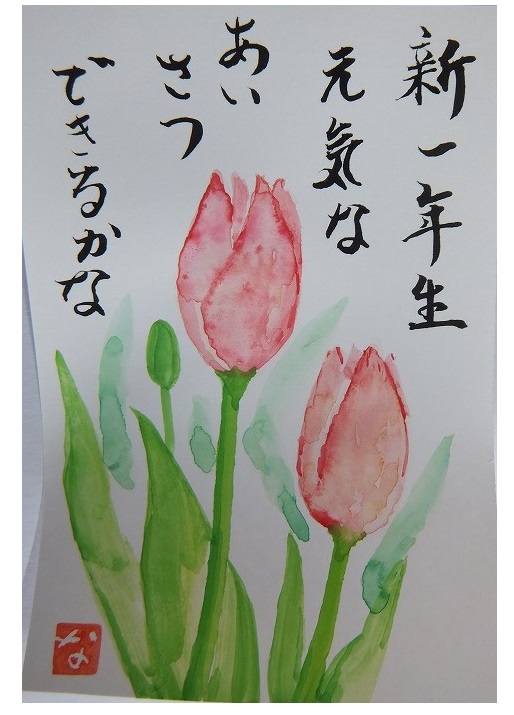 新一年生
元気な
あい
さつ
できるかな
な